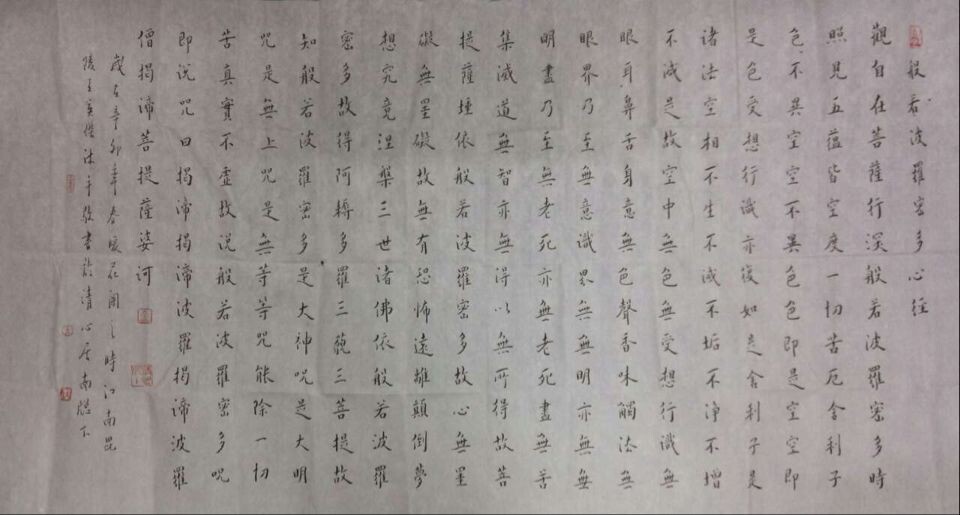 般若波羅密多心經
觀自在菩薩行深般若波羅密多時
照見五蘊皆空度一切苦厄舍利子
色不異空空不異色色即是空空即
是色受想行識亦復如是舍利子是
諸法空相不生不滅不垢不淨不增
不減是故空中無色無受想行識無
眼耳鼻舌身意無色聲香味觸法無
眼界乃至無意識界無無明亦無無
明盡乃至無老死亦無老死盡無苦
集滅道無智亦無得以無所得故菩
提薩埵依般若波羅密多故心無罣
礙無罣礙故無有恐怖遠離顛倒夢
想究竟涅槃三世諸佛依般若波羅
密多故得阿耨多羅三藐三菩提故
知般若波羅密多是大神咒是大明
咒是無上咒是無等等咒能除一切
苦真實不虛故说般若波羅密多咒
即说咒曰揭諦揭諦波羅揭諦波羅
僧揭諦菩提薩婆訶
歲在辛卯年春暖花開之時江南昆
陵王英傑沐手敬書於清心居南牕下